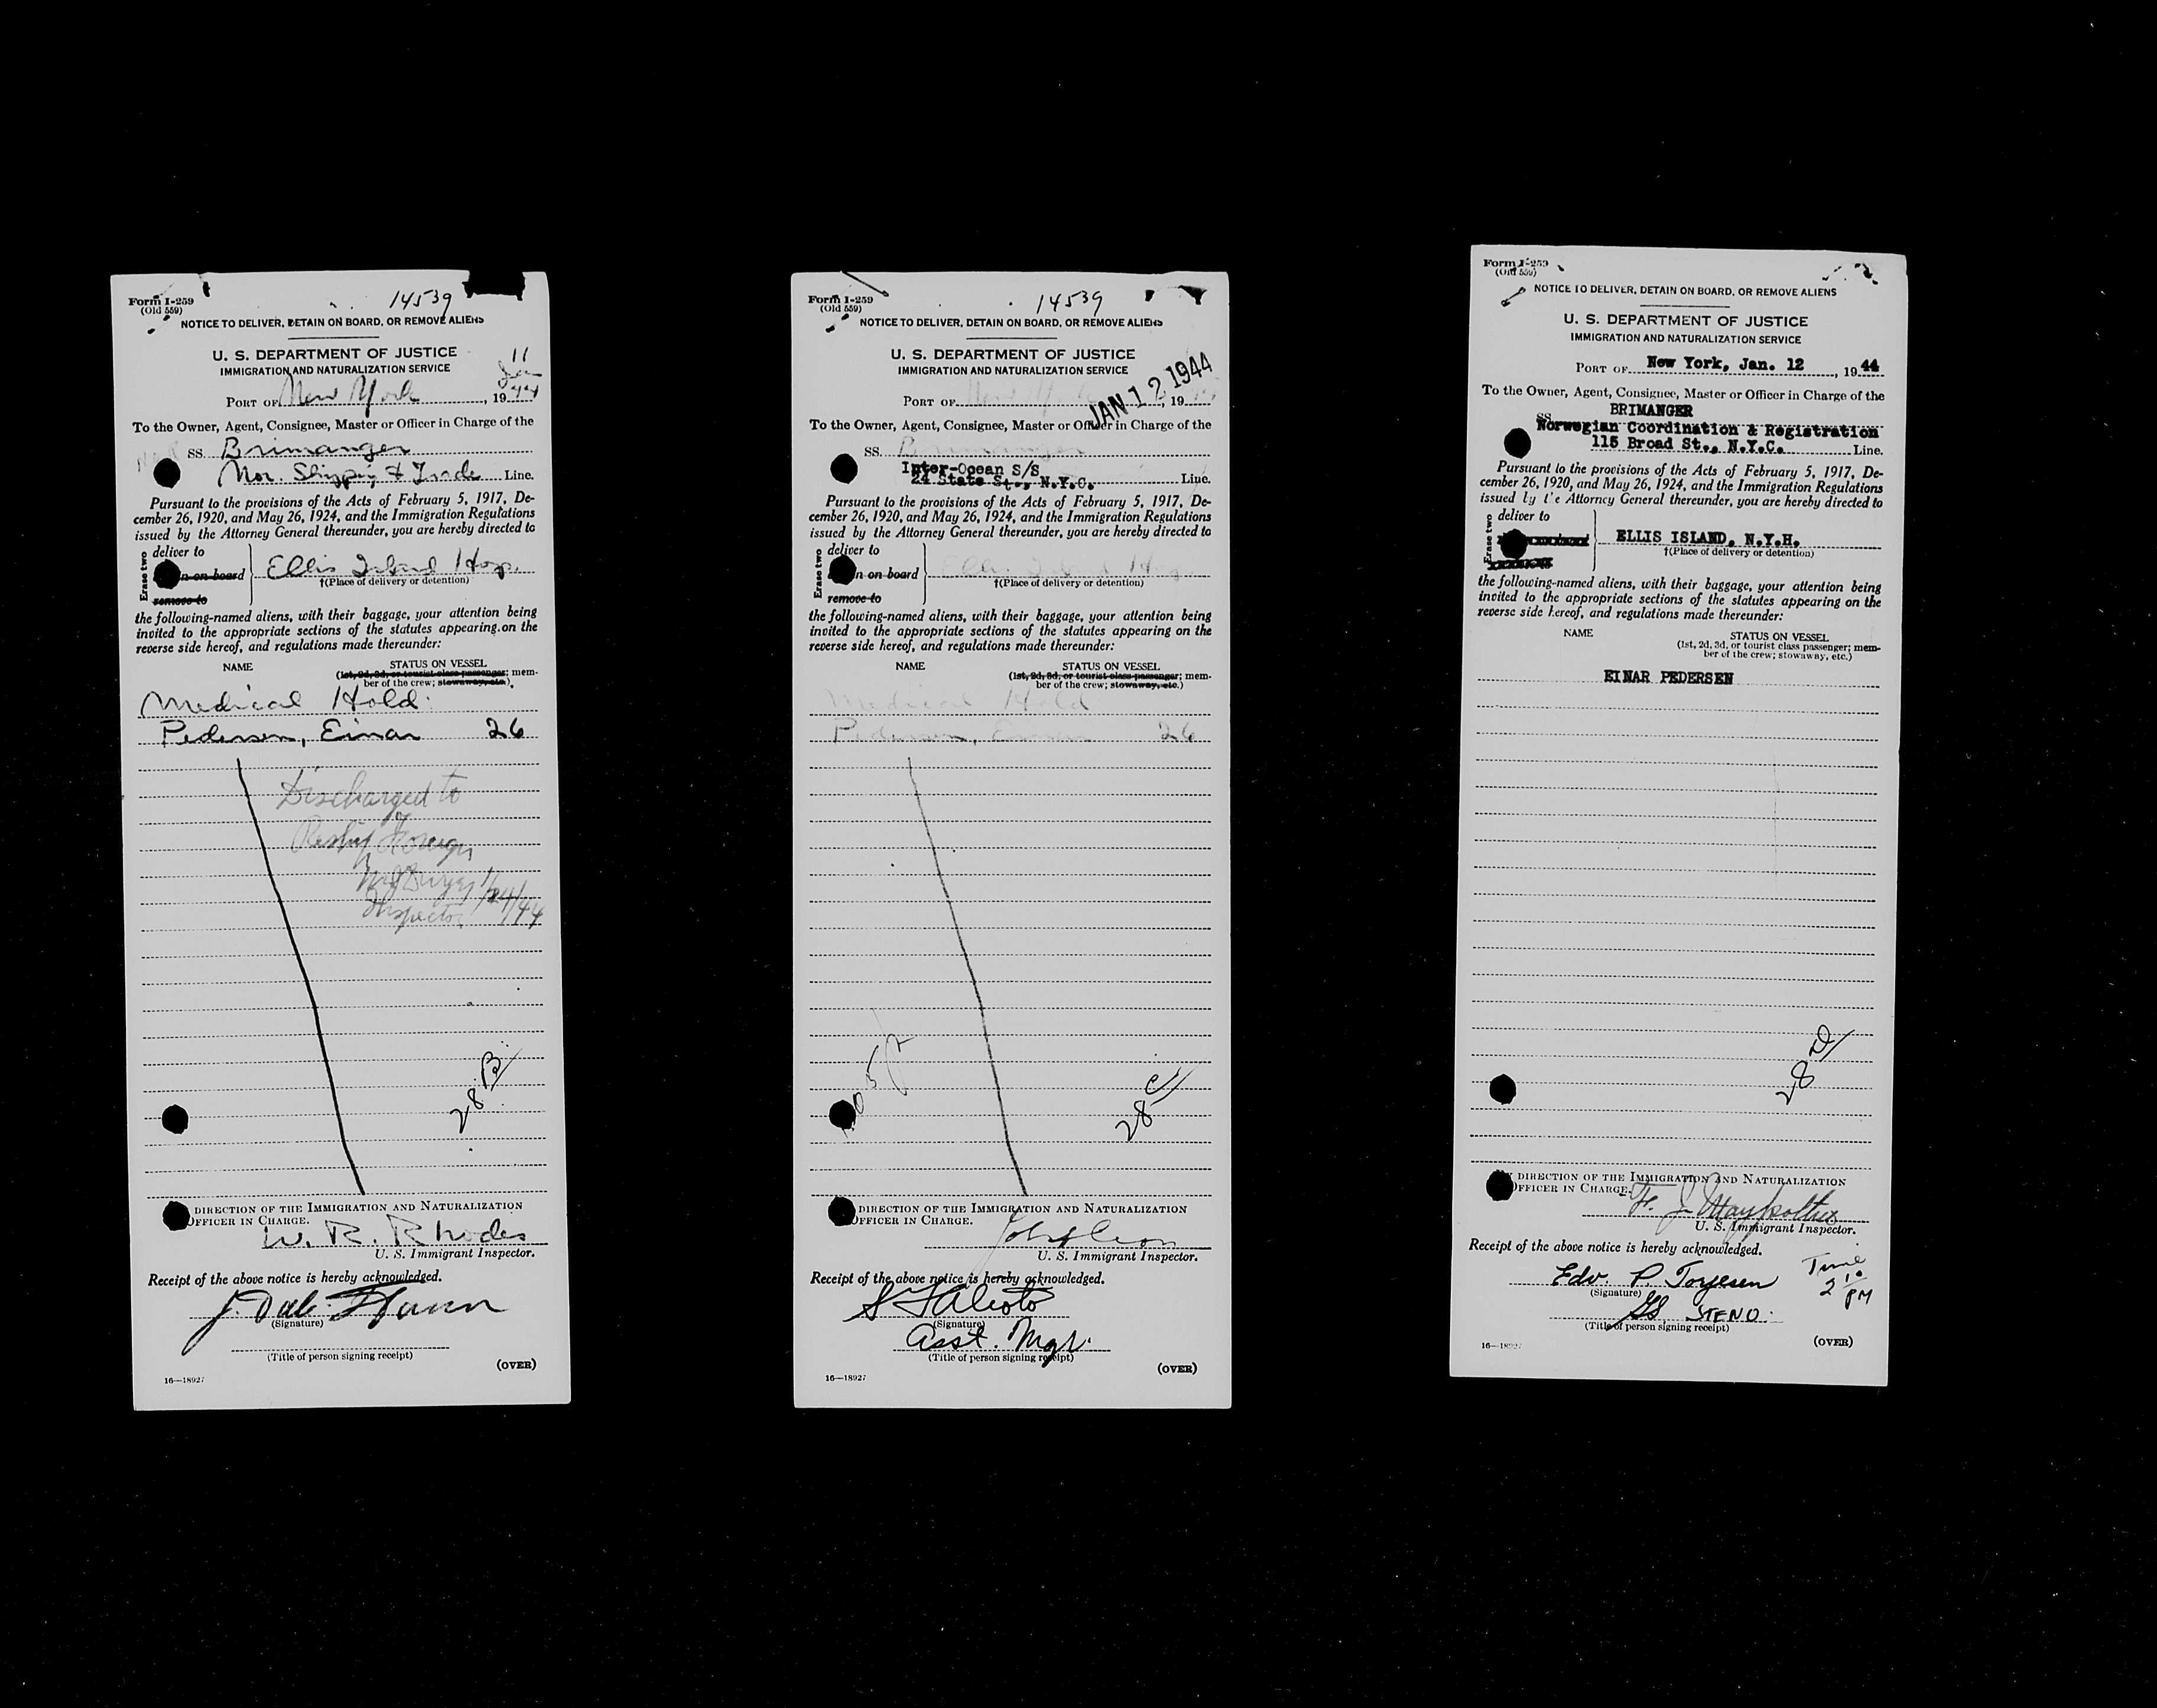 Form I-259
(Old 559)
14539
NOTICE TO DELIVER, DETAIN ON BOARD, OR REMOVE ALIENS
U. S. DEPARTMENT OF JUSTICE
IMMIGRATION AND NATURALIZATION SERVICE
11
Jan
PORT OF New York, 1944
To the Owner, Agent, Consignee, Master or Officer in Charge of the
SS. Brimanger
Nor. Shipping & Trade Line.
Pursuant to the provisions of the Acts of February 5, 1917, De-
cember 26, 1920, and May 26, 1924, and the Immigration Regulations
issued by the Attorney General thereunder, you are hereby directed to
Erase two
deliver to
n on board
remove to
Ellis Island Hosp.
†(Place of delivery or detention)
the following-named aliens, with their baggage, your attention being
invited to the appropriate sections of the statutes appearing on the
reverse side hereof, and regulations made thereunder:
NAME STATUS ON VESSEL
(1st, 2d, 3d, or tourist class passenger; mem-
ber of the crew; stowaway, etc.)
Medical Hold
Pedersen, Einar 26
Discharged to
Reship Foreign
1/24/44
Inspector
28 B
DIRECTION OF THE IMMIGRATION AND NATURALIZATION
OFFICER IN CHARGE.
W. R. Rhodes
U. S. Immigrant Inspector.
Receipt of the above notice is hereby acknowledged.
J. Dale
(Signature)
(Title of person signing receipt)
(OVER)
16—18927
Form I-259
(Old 559)
14539
NOTICE TO DELIVER, DETAIN ON BOARD, OR REMOVE ALIENS
U. S. DEPARTMENT OF JUSTICE
IMMIGRATION AND NATURALIZATION SERVICE
JAN 12 1944
PORT OF New York, 19
To the Owner, Agent, Consignee, Master or Officer in Charge of the
SS. Brimanger
Inter-Ocean S/S
24 State St., N.Y.C. Line.
Pursuant to the provisions of the Acts of February 5, 1917, De-
cember 26, 1920, and May 26, 1924, and the Immigration Regulations
issued by the Attorney General thereunder, you are hereby directed to
Erase two
deliver to
n on board
remove to
Ellis Island Hosp
†(Place of delivery or detention)
the following-named aliens, with their baggage, your attention being
invited to the appropriate sections of the statutes appearing on the
reverse side hereof, and regulations made thereunder:
NAME STATUS ON VESSEL
(1st, 2d, 3d, or tourist class passenger; mem-
ber of the crew; stowaway, etc.)
Medical Hold
Pedersen, Einar 26
28 C
DIRECTION OF THE IMMIGRATION AND NATURALIZATION
OFFICER IN CHARGE.
U. S. Immigrant Inspector.
Receipt of the above notice is hereby acknowledged.
(Signature)
Asst. Mgr.
(Title of person signing receipt)
(OVER)
16—18927
Form I-259
(Old 559)
NOTICE TO DELIVER, DETAIN ON BOARD, OR REMOVE ALIENS
U. S. DEPARTMENT OF JUSTICE
IMMIGRATION AND NATURALIZATION SERVICE
PORT OF New York, Jan. 12, 1944
To the Owner, Agent, Consignee, Master or Officer in Charge of the
SS. BRIMANGER
Norwegian Coordination & Registration
115 Broad St., N.Y.C. Line.
Pursuant to the provisions of the Acts of February 5, 1917, De-
cember 26, 1920, and May 26, 1924, and the Immigration Regulations
issued by the Attorney General thereunder, you are hereby directed to
Erase two
deliver to
ELLIS ISLAND, N.Y.H.
†(Place of delivery or detention)
the following-named aliens, with their baggage, your attention being
invited to the appropriate sections of the statutes appearing on the
reverse side hereof, and regulations made thereunder:
NAME STATUS ON VESSEL
(1st, 2d, 3d, or tourist class passenger; mem-
ber of the crew; stowaway, etc.)
EINAR PEDERSEN
28 D
DIRECTION OF THE IMMIGRATION AND NATURALIZATION
OFFICER IN CHARGE.
U. S. Immigrant Inspector.
Receipt of the above notice is hereby acknowledged.
Edv. P. Torjesen
Time
2 10 PM
(Signature)
STENO.
(Title of person signing receipt)
(OVER)
16—18927